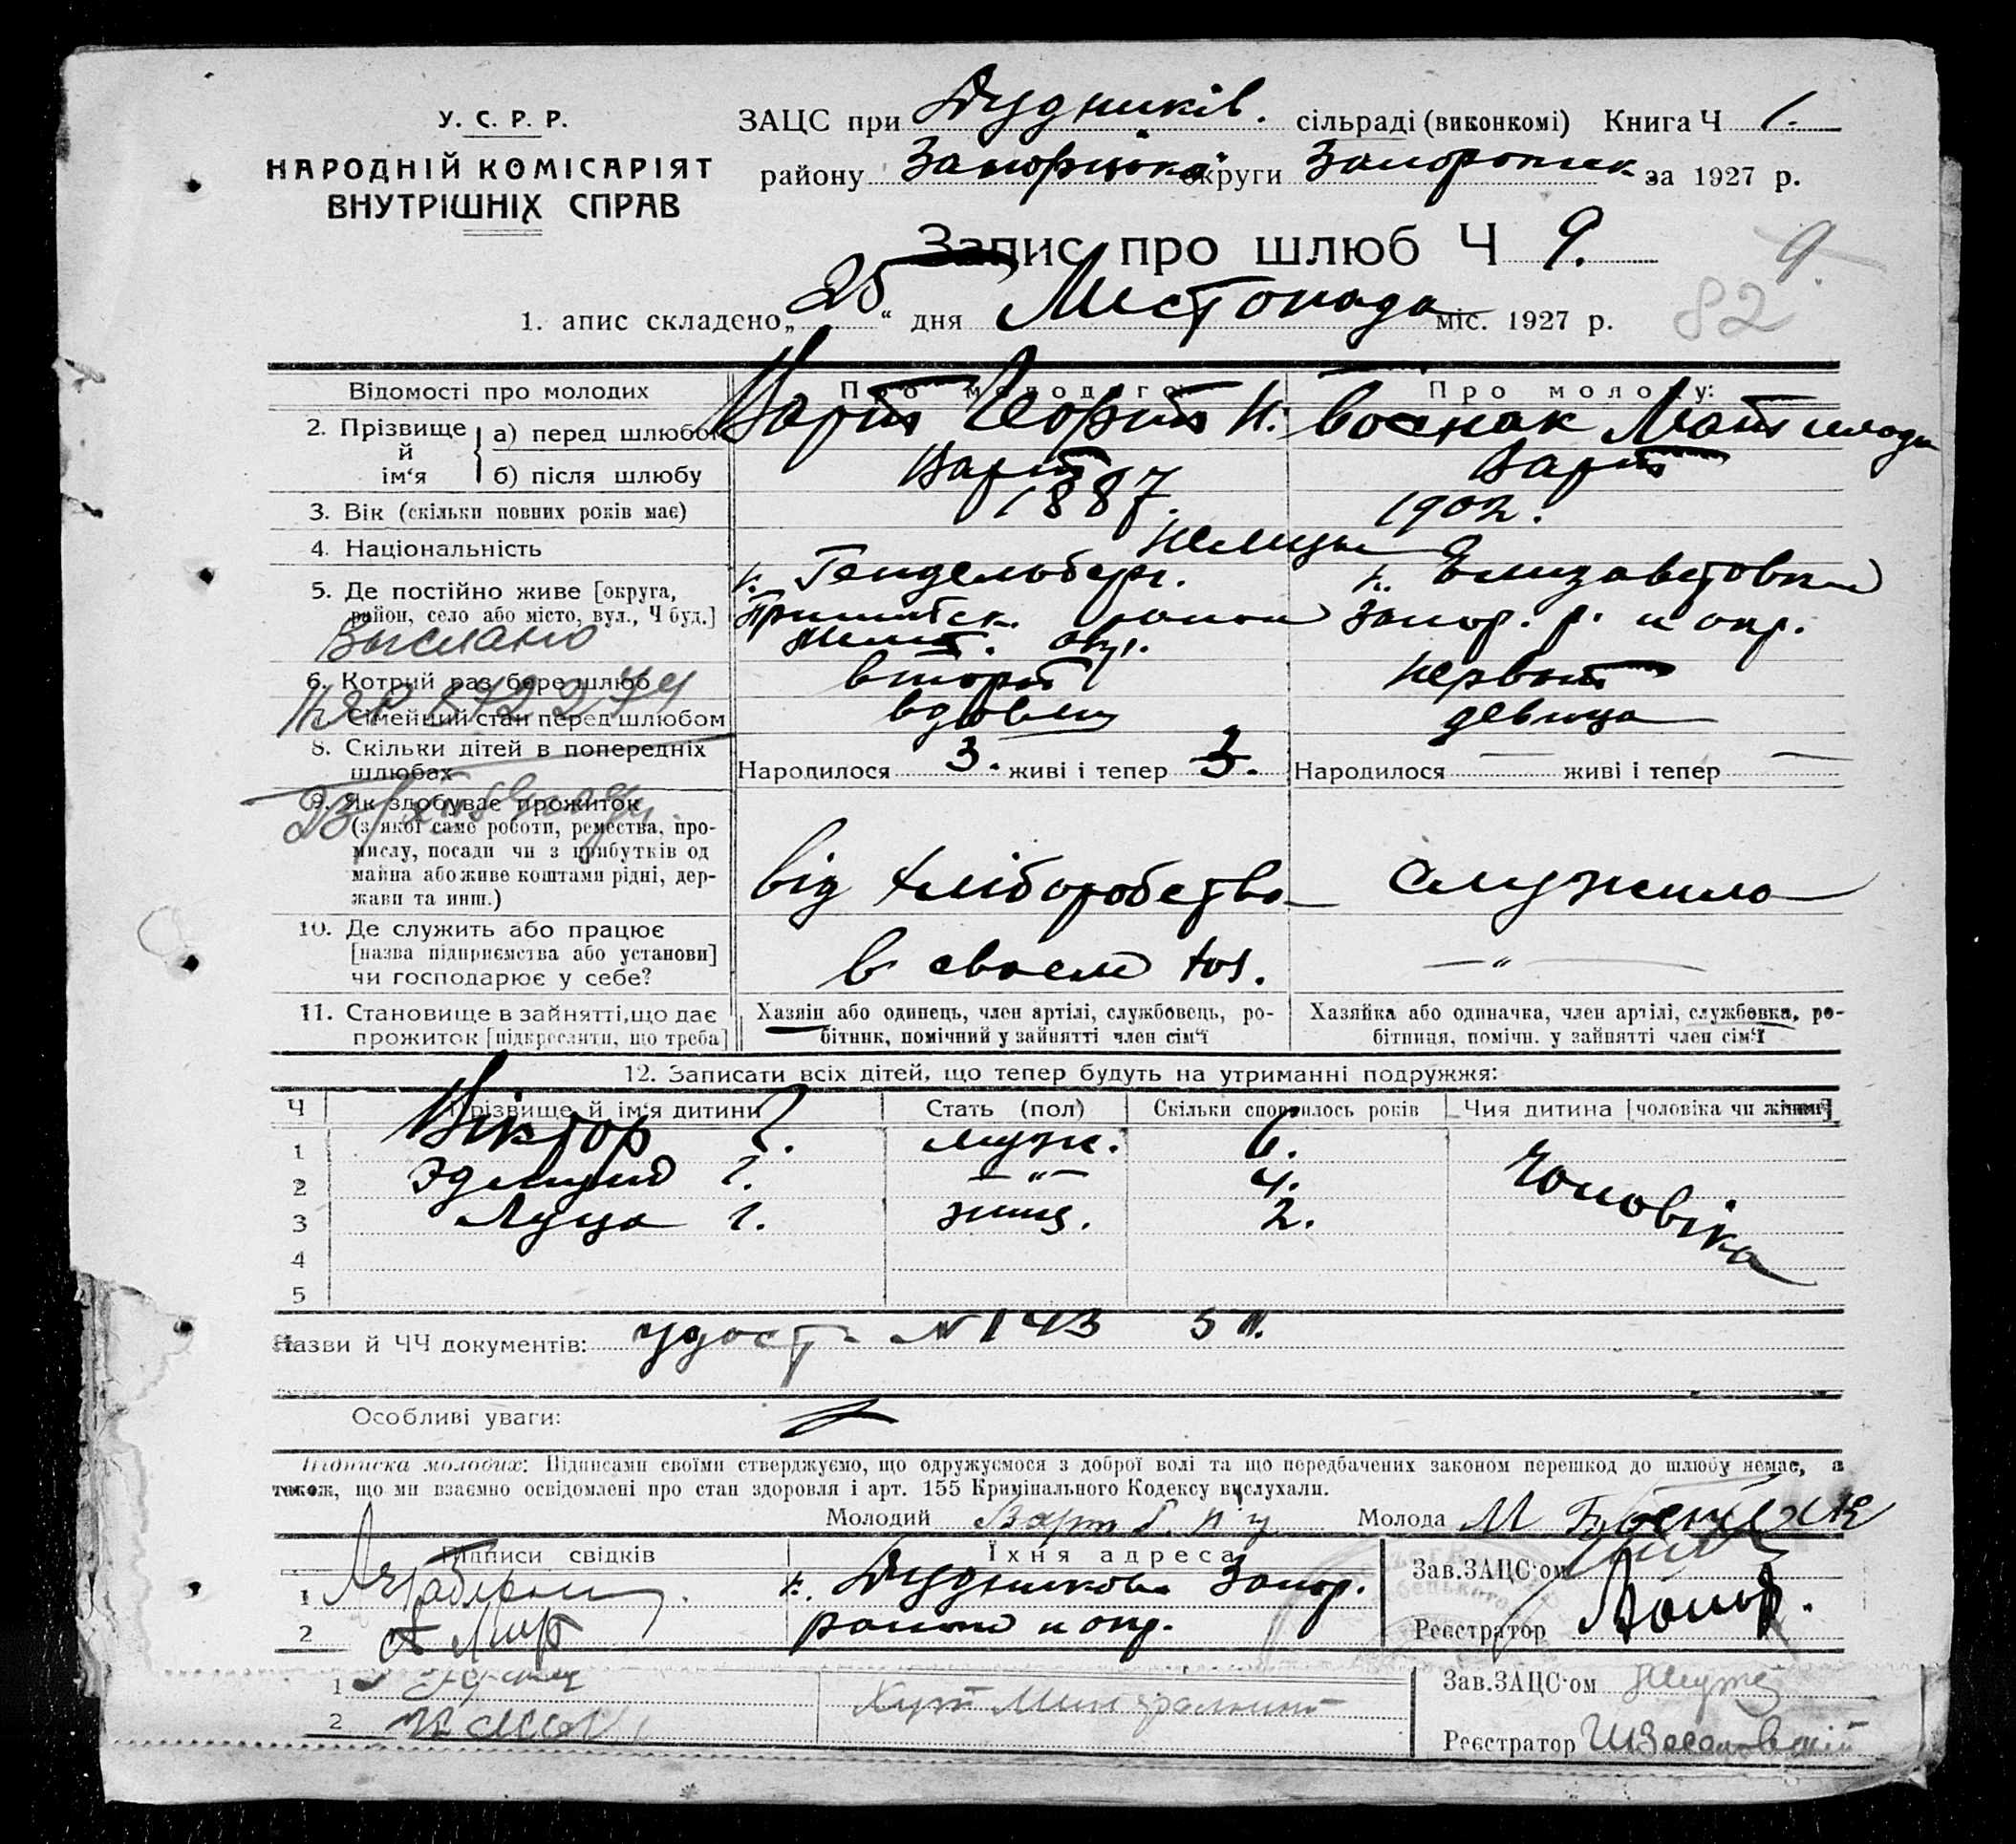 У. С. Р. Р.
НАРОДНІЙ КОМІСАРІЯТ
ВНУТРІШНІХ СПРАВ
ЗАЦС при Дудників. сільраді (виконкомі) Книга Ч 1.
району округи за 1927 р.
Запис про шлюб Ч 9.
9.
82
1. апис складено „25“ дня Листопада міс. 1927 р.
Відомості про молодих
Про молодого:
Про молоду:
2. Прізвище й ім‘я
а) перед шлюбом
Варт Георгий И.
Боснак
б) після шлюбу
Варт
Варт
3. Вік (скільки повних років має)
1887.
1902.
4. Національність
немцы
5. Де постійно живе [округа, район, село або місто, вул., Ч буд.]
к. Гендельберг.
Пришибск. район
Мелит. окр.
к. Елизаветовка
Запор. р. и окр.
Выслано
6. Котрий раз бере шлюб
второй
первый
7. Сімейний стан перед шлюбом
вдовец
девица
8. Скільки дітей в попередніх шлюбах
Народилося 3. живі і тепер 3.
Народилося — живі і тепер —
9. Як здобуває прожиток
(з якої саме роботи, ремества, про-
мислу, посади чи з прибутків од
майна або живе коштами рідні, дер-
жави та инш.)
від хліборобства
служила
10. Де служить або працює
[назва підприємства або установи]
чи господарює у себе?
в своем хоз.
— „ —
11. Становище в зайнятті, що дає
прожиток [підкреслити, що треба]
Хазяін або одинець, член артілі, службовець, ро-
бітник, помічний у зайнятті член сім‘ї
Хазяйка або одиначка, член артілі, службовка, ро-
бітниця, помічн. у зайнятті член сім‘ї
12. Записати всіх дітей, що тепер будуть на утриманні подружжя:
Ч Прізвище й ім‘я дитини Стать (пол) Скільки сповнилось років Чия дитина [чоловіка чи жінки]
1 Віктор Г. муж. 6.
2 Эдмунд Г. — „ — 4.
3 Луца Г. жінц. 2.
Чоловіка
4
5
Назви й ЧЧ документів: удост. N 143
Особливі уваги:
Підписка молодих: Підписами своїми стверджуємо, що одружуємося з доброї волі та що передбачених законом перешкод до шлюбу немає, а
також, що ми взаємно освідомлені про стан здоровля і арт. 155 Кримінального Кодексу вислухали.
Молодий Варт Г.
Молода М
Підписи свідків
Їхня адреса
Зав.ЗАЦС‘ом
1
к. Дудниково Запор.
2
района и окр.
Реєстратор
1
Хут
Зав.ЗАЦС‘ом
2
Реєстратор